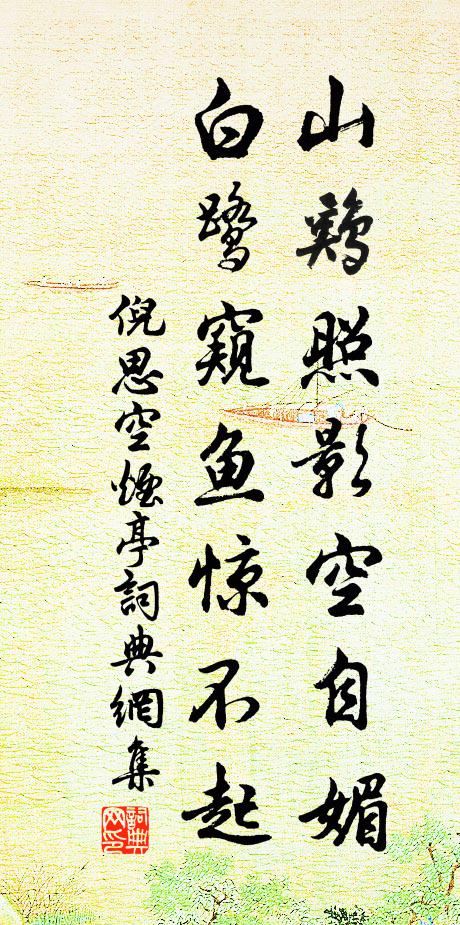 山鷄照影空自媚
白鹭窺鱼惊不起
倪思空煙亭詞典網集
詞典網印